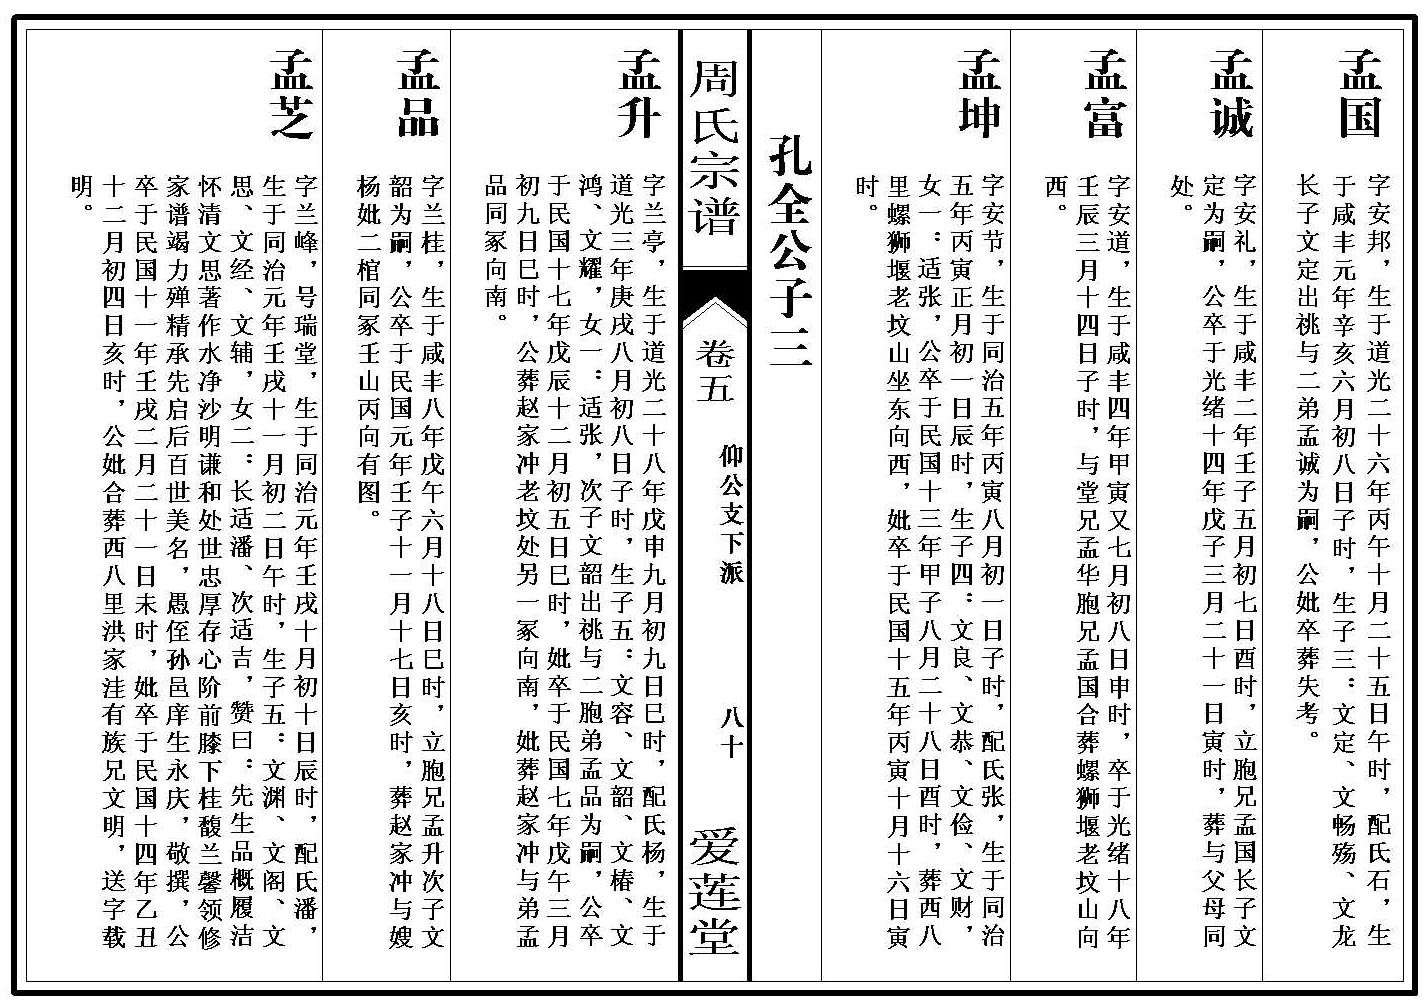 孟国
字安邦，生于道光二十六年丙午十月二十五日午时，配氏石，生
于咸丰元年辛亥六月初八日子时，生子三：文定、文畅殇、文龙
长子文定出祧与二弟孟诚为嗣，公妣卒葬失考。
孟诚
字安礼，生于咸丰二年壬子五月初七日酉时，立胞兄孟国长子文
定为嗣，公卒于光绪十四年戊子三月二十一日寅时，葬与父母同
处。
孟富
字安道，生于咸丰四年甲寅又七月初八日申时，卒于光绪十八年
壬辰三月十四日子时，与堂兄孟华胞兄孟国合葬螺狮堰老坟山向
西。
孟坤
字安节，生于同治五年丙寅八月初一日子时，配氏张，生于同治
五年丙寅正月初一日辰时，生子四：文良、文恭、文俭、文财，
女一：适张，公卒于民国十三年甲子八月二十八日酉时，葬西八
里螺狮堰老坟山坐东向西，妣卒于民国十五年丙寅十月十六日寅
时。
孔全公子三
周氏宗谱
卷五
仰公支下派
八十
爱莲堂
孟升
字兰亭，生于道光二十八年戊申九月初九日巳时，配氏杨，生于
道光三年庚戌八月初八日子时，生子五：文容、文韶、文椿、文
鸿、文耀，女一：适张，次子文韶出祧与二胞弟孟品为嗣，公卒
于民国十七年戊辰十二月初五日巳时，妣卒于民国七年戊午三月
初九日巳时，公葬赵家冲老坟处另一冢向南，妣葬赵家冲与弟孟
品同冢向南。
孟品
字兰桂，生于咸丰八年戊午六月十八日巳时，立胞兄孟升次子文
韶为嗣，公卒于民国元年壬子十一月十七日亥时，葬赵家冲与嫂
杨妣二棺同冢壬山丙向有图。
孟芝
字兰峰，号瑞堂，生于同治元年壬戌十月初十日辰时，配氏潘，
生于同治元年壬戌十一月初二日午时，生子五：文渊、文阁、文
思、文经、文辅，女二：长适潘、次适吉，赞曰：先生品概履洁
怀清文思著作水净沙明谦和处世忠厚存心阶前膝下桂馥兰馨领修
家谱竭力殚精承先启后百世美名，愚侄孙邑庠生永庆，敬撰，公
卒于民国十一年壬戌二月二十一日未时，妣卒于民国十四年乙丑
十二月初四日亥时，公妣合葬西八里洪家洼有族兄文明，送字载
明。